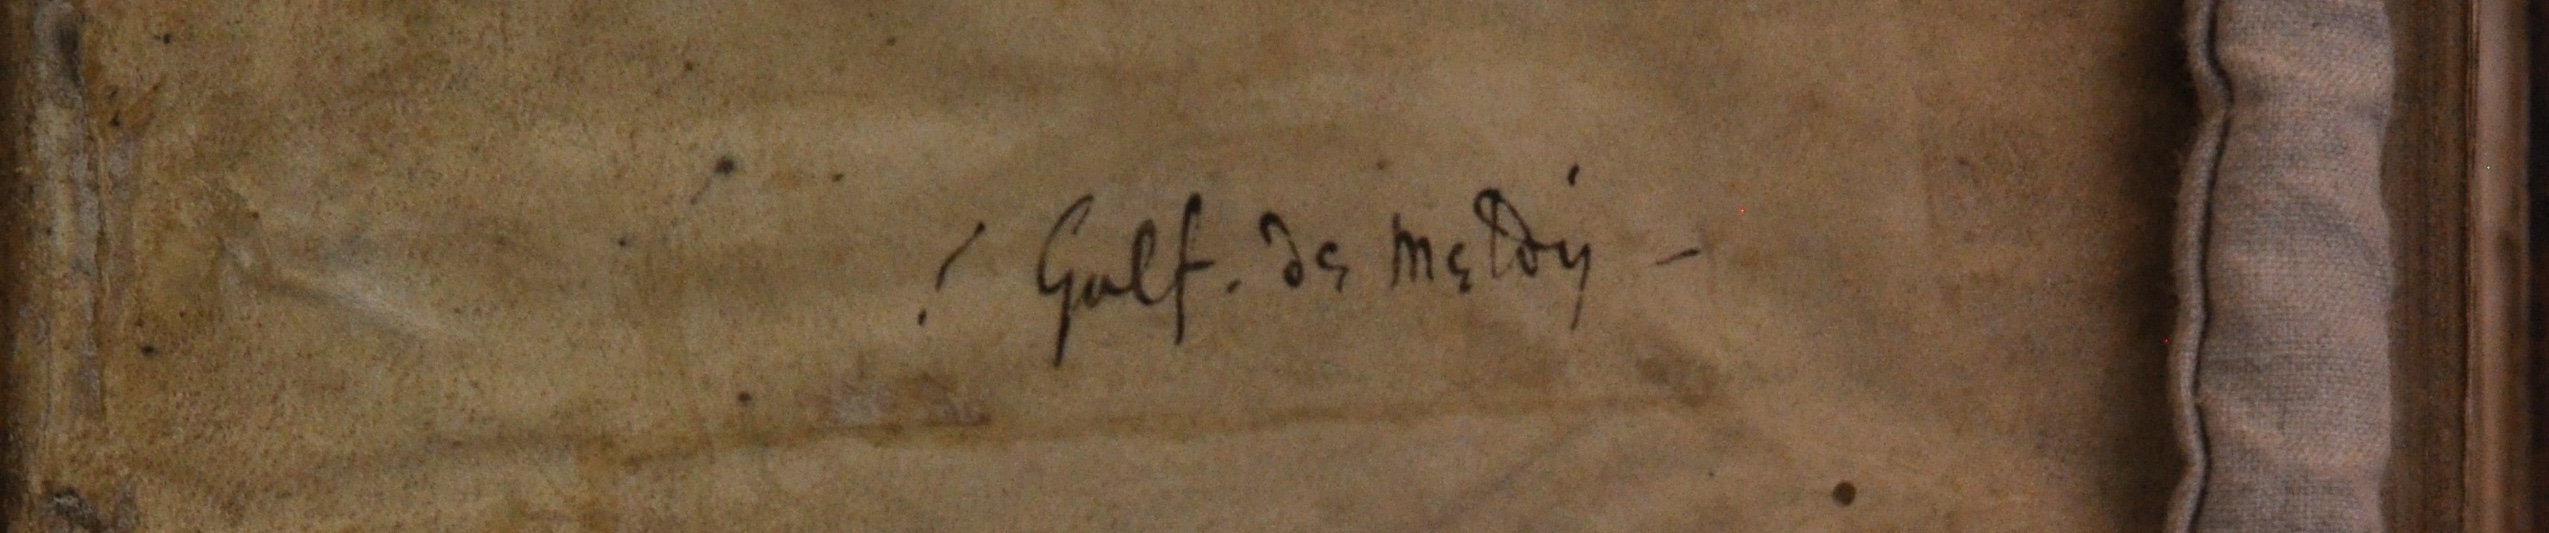 Galf. de Meldij -